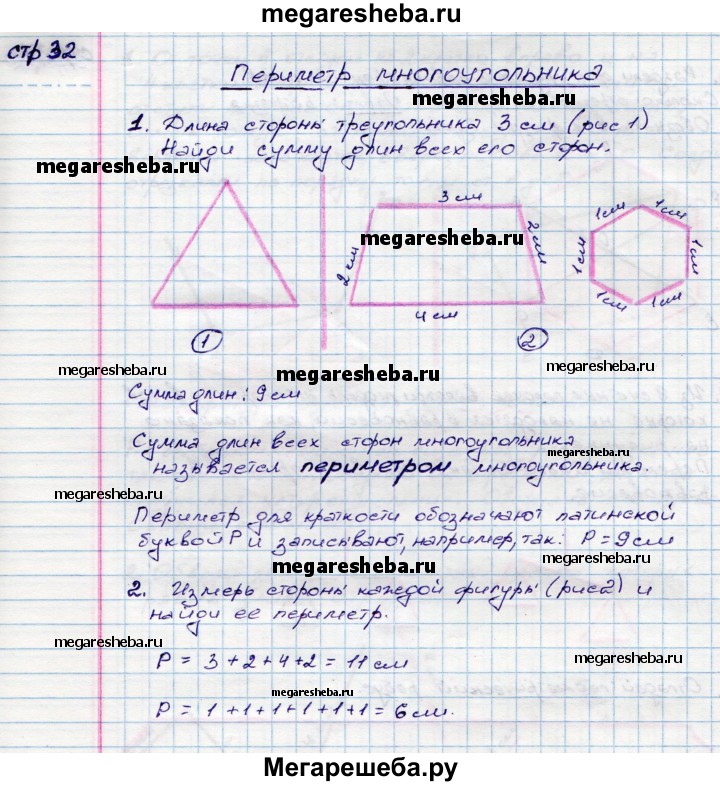 megaresheba.ru
стр 32
Периметр многоугольника
megaresheba.ru
1. Длина стороны треугольника 3 см (рис 1)
Найди сумму длин всех его сторон.
megaresheba.ru
3 см
2 см
2 см
4 см
megaresheba.ru
1 см
1 см
1 см
1 см
1 см
1 см
1
2
megaresheba.ru
megaresheba.ru
megaresheba.ru
Сумма длин: 9 см
megaresheba.ru
Сумма длин всех сторон многоугольника
называется периметром многоугольника.
megaresheba.ru
megaresheba.ru
Периметр для краткости обозначают латинской
буквой P и записывают, например, так: P = 9 см
megaresheba.ru
2. Измерь стороны каждой фигуры (рис 2) и
найди ее периметр.
megaresheba.ru
megaresheba.ru
P = 3 + 2 + 4 + 2 = 11 см
megaresheba.ru
P = 1 + 1 + 1 + 1 + 1 + 1 = 6 см.
Мегарешеба.ру